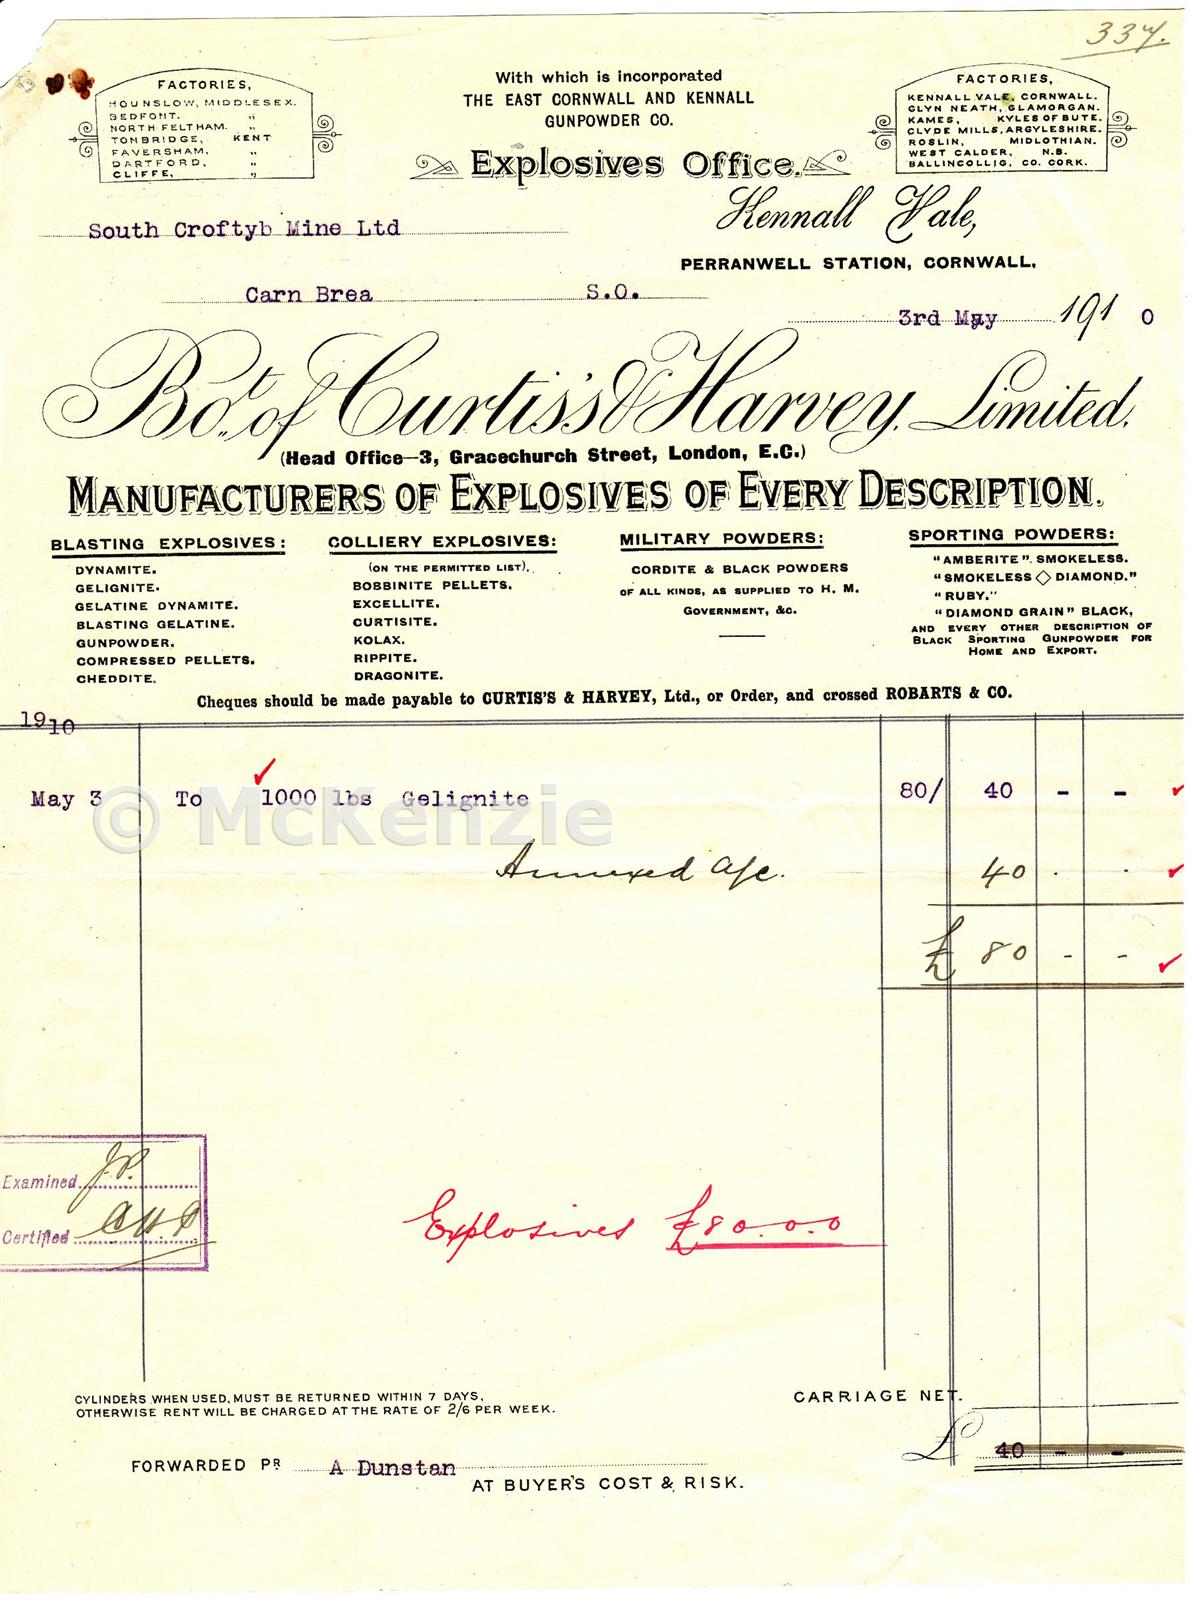 337.
FACTORIES,
HOUNSLOW, MIDDLESEX.
BEDFONT. "
NORTH FELTHAM. "
TONBRIDGE, KENT
FAVERSHAM. "
DARTFORD, "
CLIFFE, "
With which is incorporated
THE EAST CORNWALL AND KENNALL
GUNPOWDER CO.
Explosives Office.
FACTORIES,
KENNALL VALE, CORNWALL.
GLYN NEATH, GLAMORGAN.
KAMES, KYLES OF BUTE.
CLYDE MILLS, ARGYLESHIRE.
ROSLIN, MIDLOTHIAN.
WEST CALDER, N.B.
BALLINCOLLIG, CO. CORK.
Kennall Vale,
PERRANWELL STATION, CORNWALL.
South Croftyb Mine Ltd
Carn Brea S.O.
3rd May 1910
Bot. of Curtis's & Harvey, Limited.
(Head Office—3, Gracechurch Street, London, E.C.)
MANUFACTURERS OF EXPLOSIVES OF EVERY DESCRIPTION.
BLASTING EXPLOSIVES:
DYNAMITE.
GELIGNITE.
GELATINE DYNAMITE.
BLASTING GELATINE.
GUNPOWDER.
COMPRESSED PELLETS.
CHEDDITE.
COLLIERY EXPLOSIVES:
(ON THE PERMITTED LIST).
BOBBINITE PELLETS.
EXCELLITE.
CURTISITE.
KOLAX.
RIPPITE.
DRAGONITE.
MILITARY POWDERS:
CORDITE & BLACK POWDERS
OF ALL KINDS, AS SUPPLIED TO H. M.
GOVERNMENT, &C.
SPORTING POWDERS:
"AMBERITE" SMOKELESS.
"SMOKELESS ◇ DIAMOND."
"RUBY."
"DIAMOND GRAIN" BLACK,
AND EVERY OTHER DESCRIPTION OF
BLACK SPORTING GUNPOWDER FOR
HOME AND EXPORT.
Cheques should be made payable to CURTIS'S & HARVEY, Ltd., or Order, and crossed ROBARTS & CO.
1910
May 3 To 1000 lbs Gelignite 80/ 40 - -
© McKenzie
Annexed a/c. 40 . .
£ 80 - -
Examined J.P.
Certified
Explosives £80.0.0
CYLINDERS WHEN USED, MUST BE RETURNED WITHIN 7 DAYS,
OTHERWISE RENT WILL BE CHARGED AT THE RATE OF 2/6 PER WEEK.
CARRIAGE NET.
£ 40 - -
FORWARDED PR A Dunstan
AT BUYER'S COST & RISK.